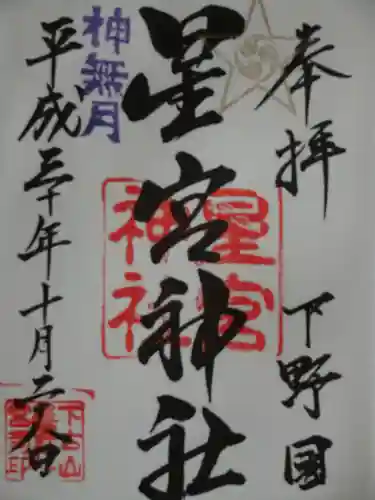 奉拝 下野国
星宮神社
星宮
神社
神無月
平成三十年十月二八日
下古山